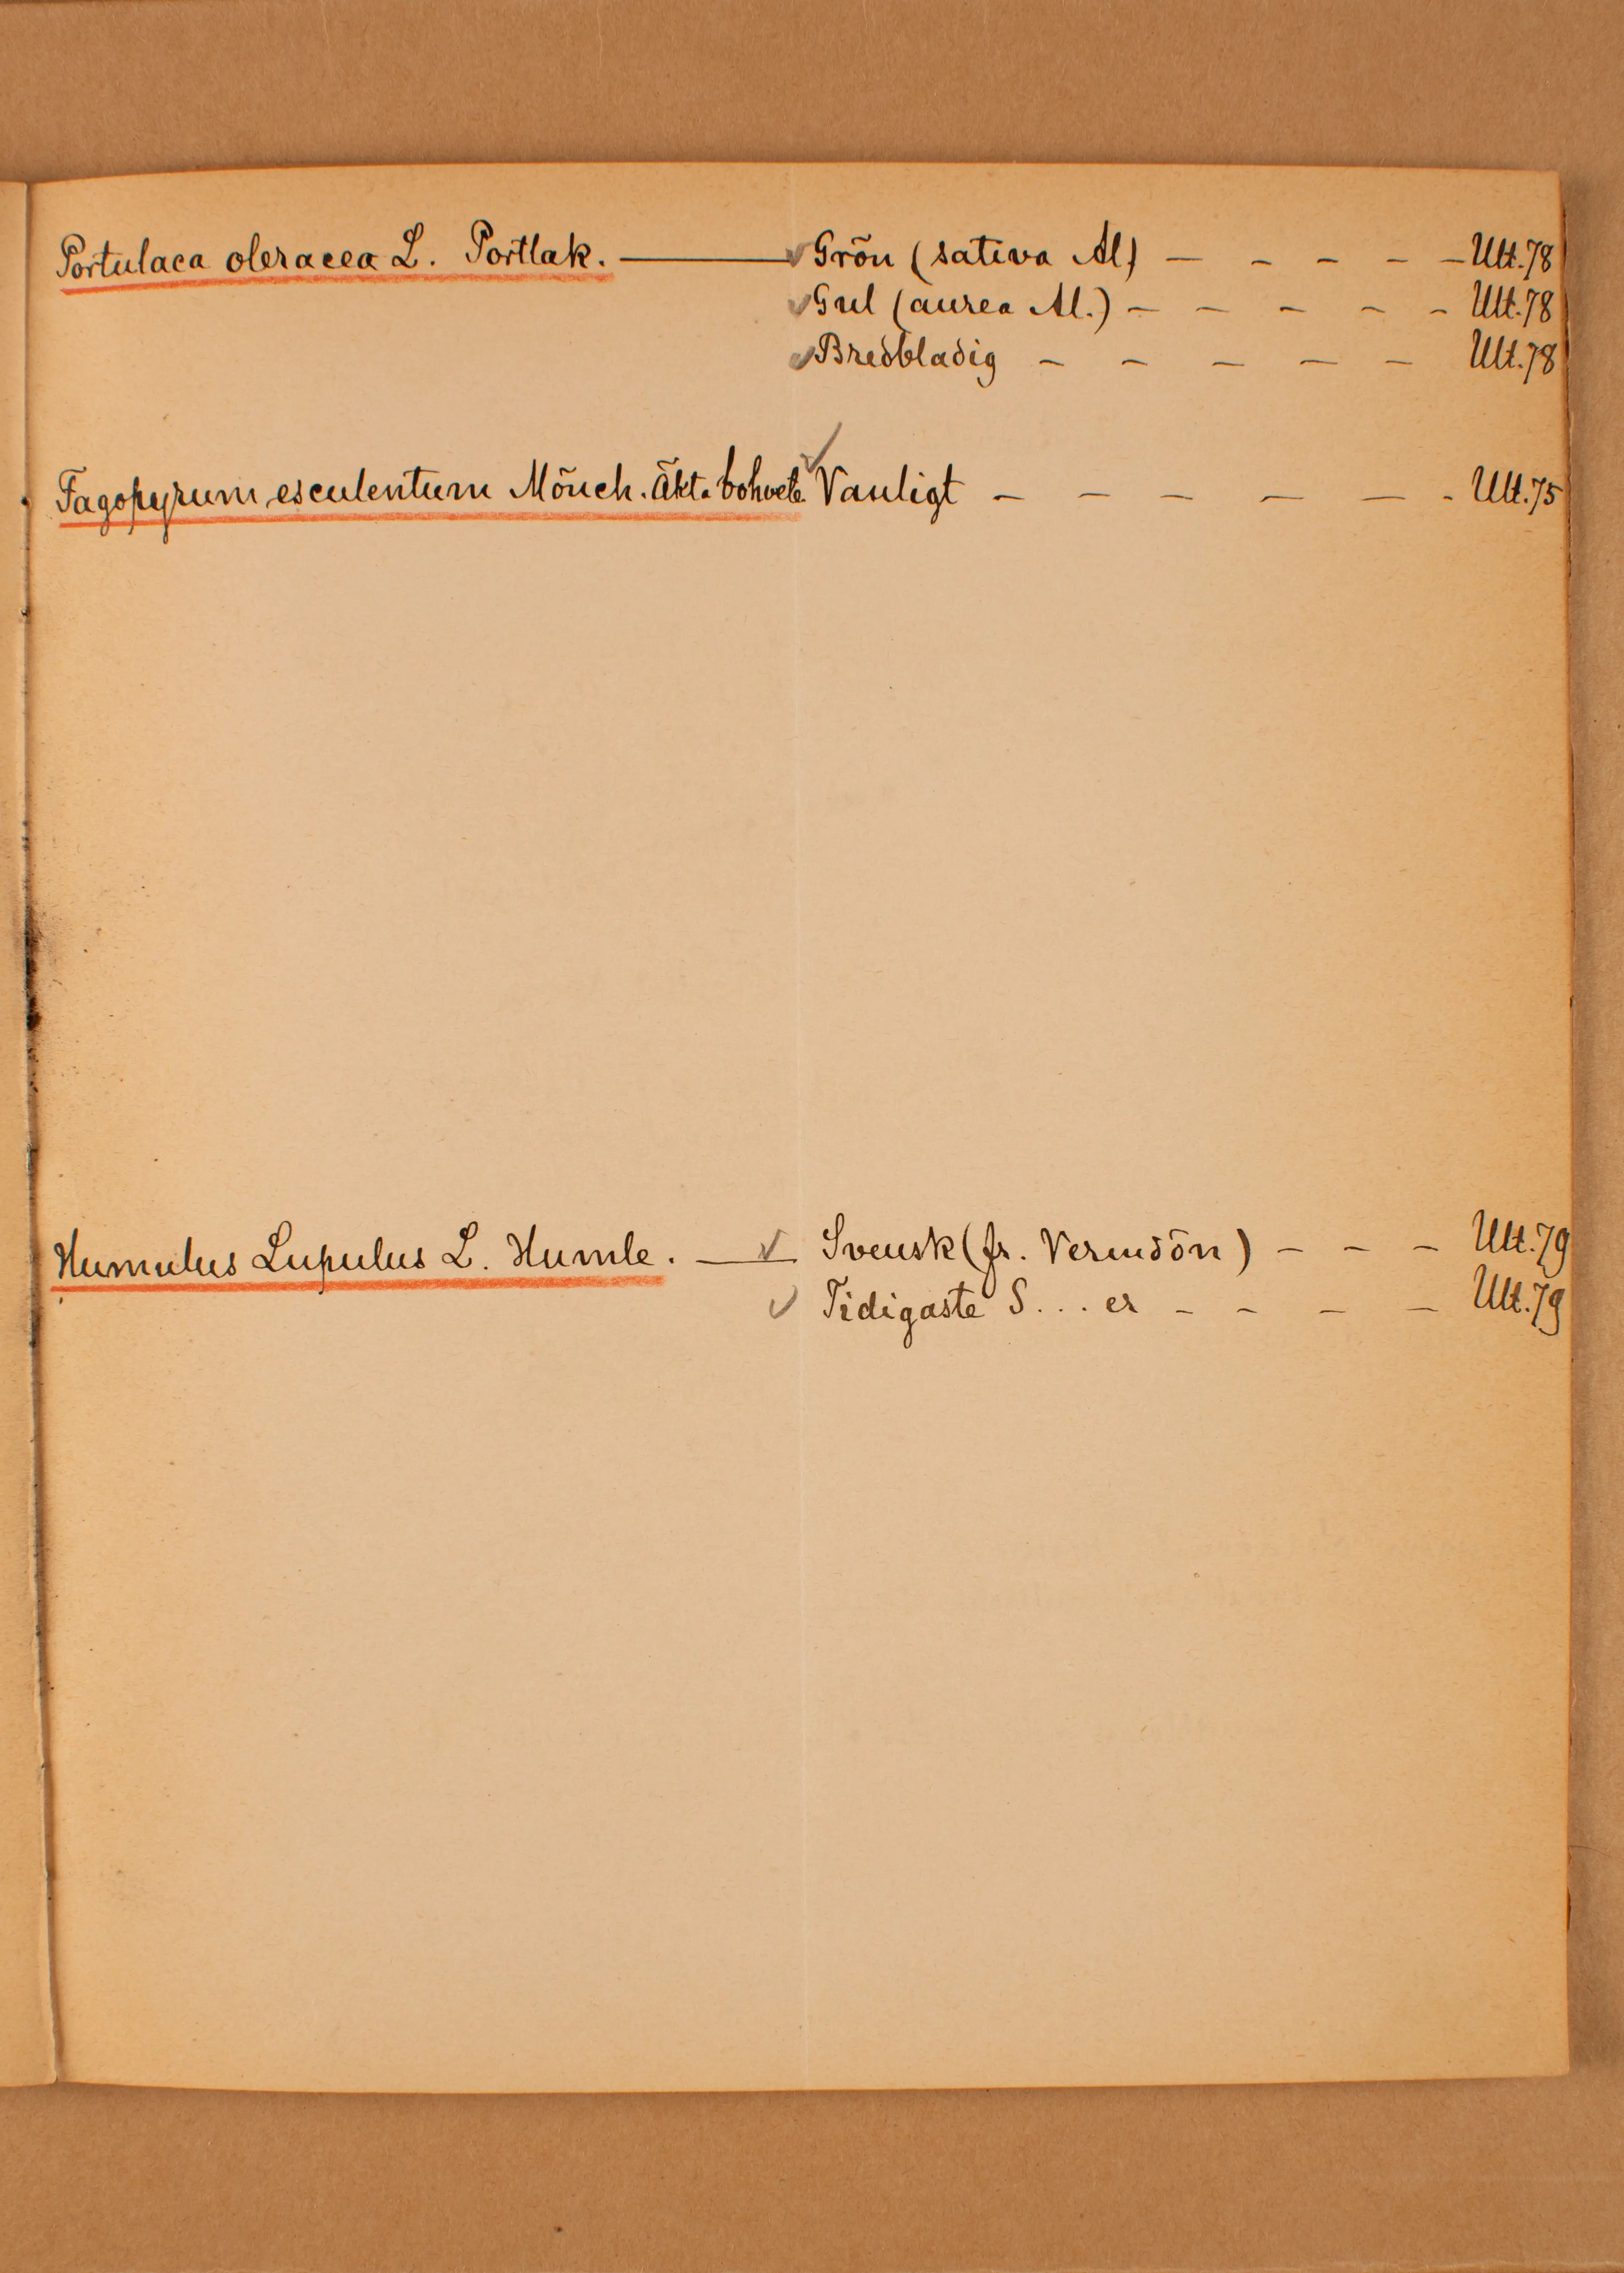 Portulaca oleracea L. Portlak. ———— ✓ Grön (sativa Al) — - - - - — Ult. 78
✓ Gul (aurea Al.) - - - - - Ult. 78
✓ Bredbladig - - - - - Ult. 78
Fagopyrum esculentum Mönch. Äkta bohvete ✓ Vanligt - - - - - - Ult. 75
Humulus Lupulus L. Humle. — ✓ — Svensk (fr. Vermdön) - - - Ult. 79
✓ Tidigaste S... er - - - - Ult. 79